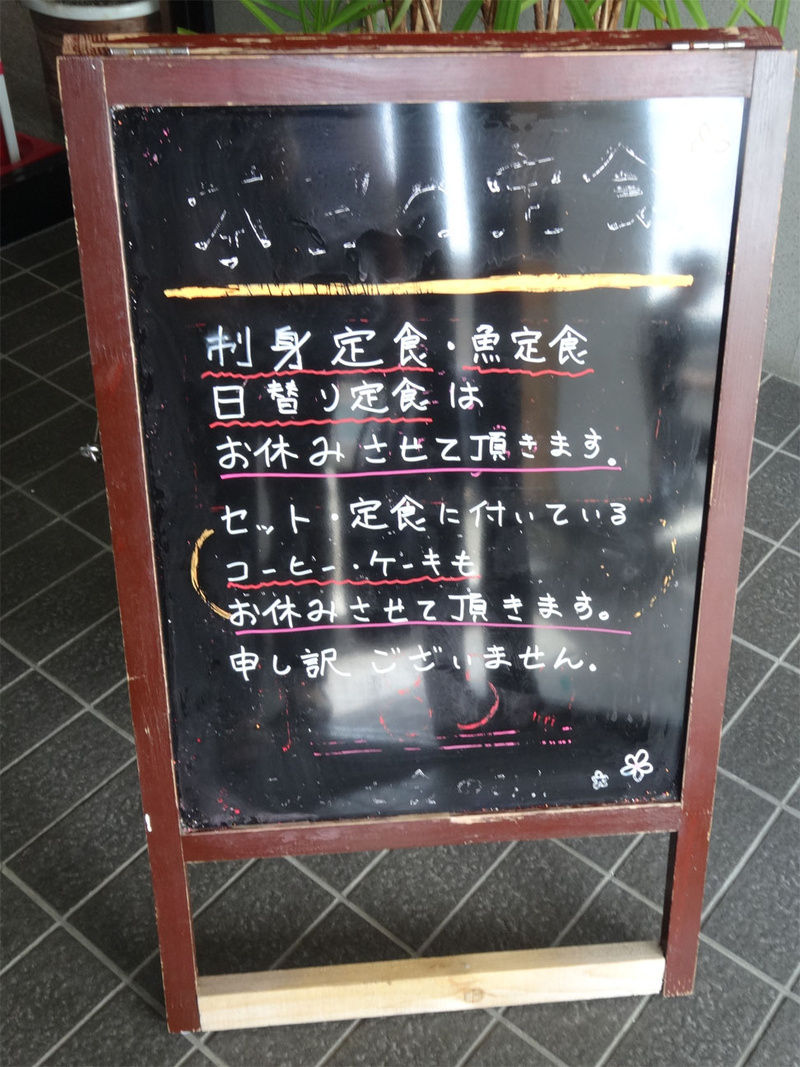 本日の定食
刺身定食・魚定食
日替り定食は
お休みさせて頂きます。
セット・定食に付いている
コーヒー・ケーキも
お休みさせて頂きます。
申し訳ございません。